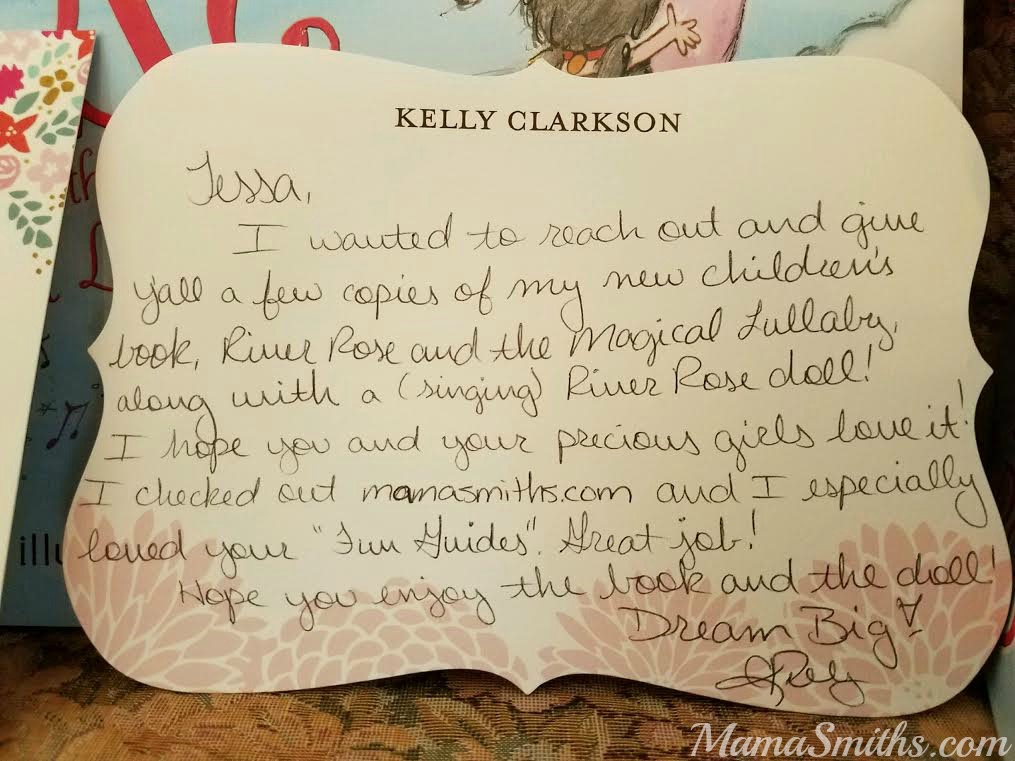 KELLY CLARKSON
Tessa,
I wanted to reach out and give
y'all a few copies of my new children's
book, River Rose and the Magical Lullaby,
along with a (singing) River Rose doll!
I hope you and your precious girls love it!
I checked out mamasmiths.com and I especially
loved your "Fun Guides". Great job!
Hope you enjoy the book and the doll!
Dream Big!
illu
MamaSmiths.com